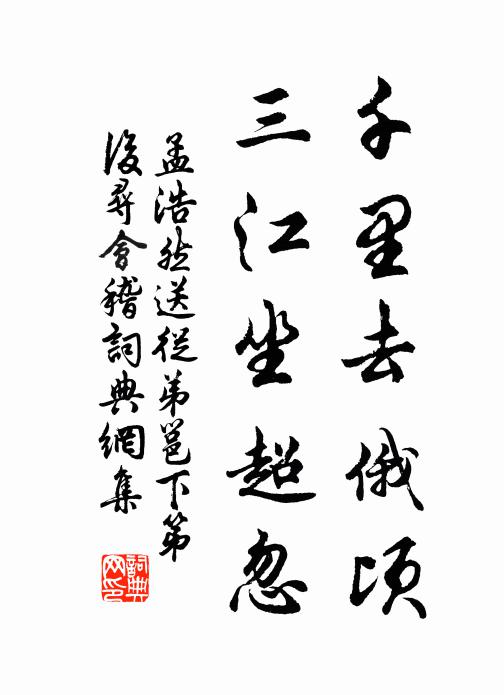 千里去俄頃
三江坐超忽
孟浩然送從弟邕下第
後尋會稽詞典網集
詞典网印